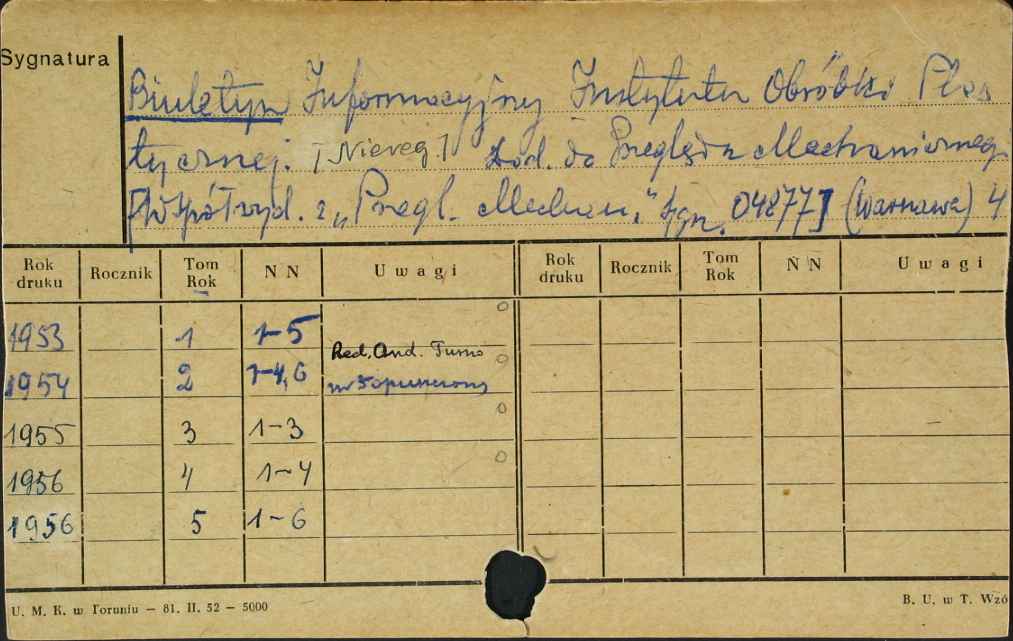 Sygnatura
Biuletyn Informacyjny Instytutu Obróbki Plas
tycznej. [Niereg.] Dod. do Przeglądu Mechanicznego
[Współwyd. z „Przegl. Mechan." sygn. 04877] (Warszawa) 4
Rok druku Rocznik Tom Rok N N Uwagi Rok druku Rocznik Tom Rok N N Uwagi
1953 1 1-5
Red. And. Tumo
1954 2 1-4, 6 nr 5 opuszczony
1955 3 1-3
1956 4 1-4
1956 5 1-6
U. M. K. w Toruniu — 81. II. 52 — 5000
B. U. w T. Wzó